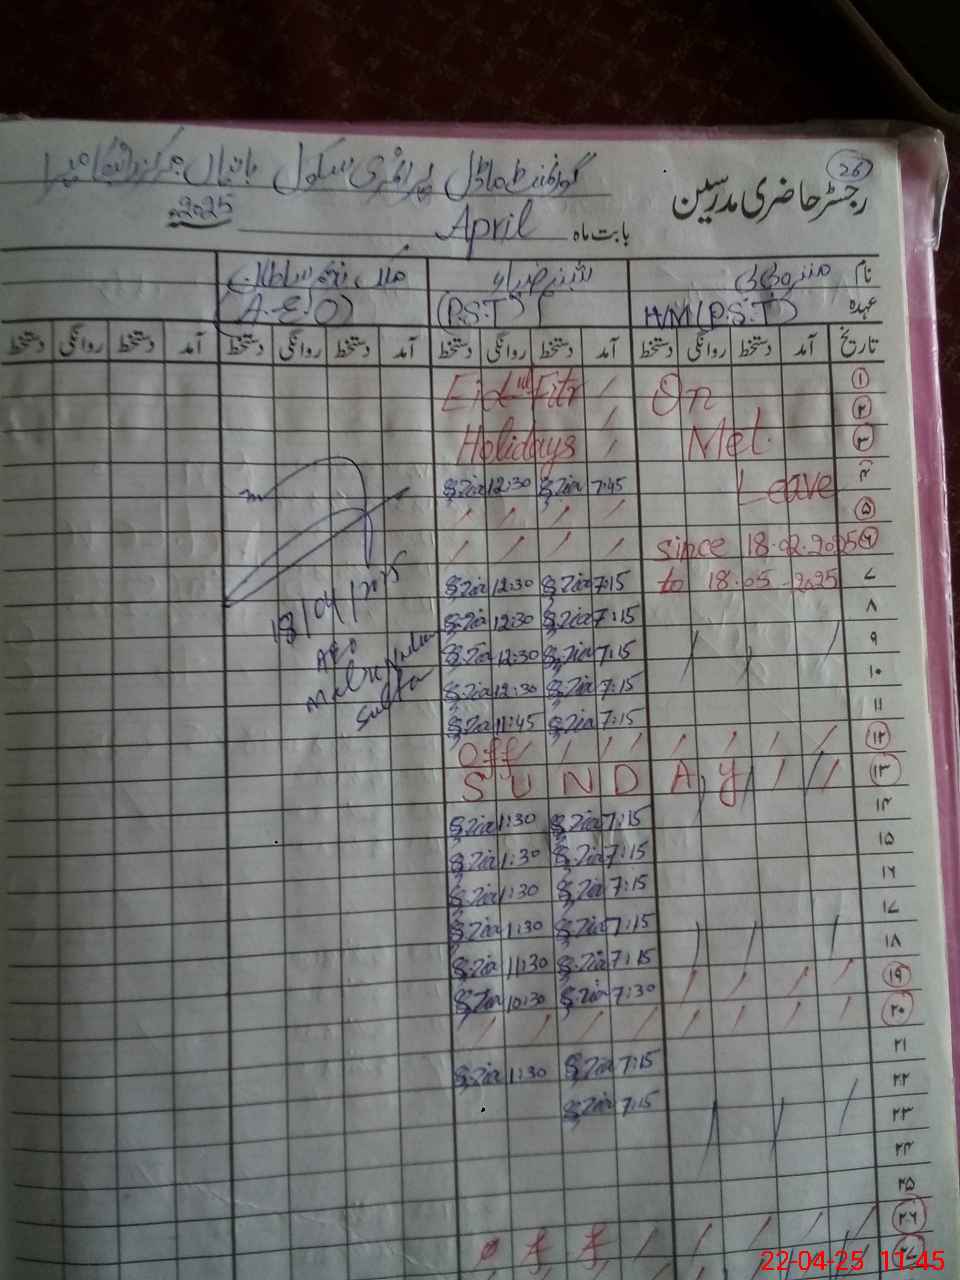 26
رجسٹر حاضری مدرسین
گورنمنٹ ماڈل پرائمری سکول
بابت ماہ April 2025
نام
عہدہ HM (P.S.T) (P.S.T) (A.E.O)
تاریخ آمد دستخط روانگی دستخط آمد دستخط روانگی دستخط آمد دستخط روانگی دستخط آمد دستخط روانگی دستخط
۱ On Eid ul Fitr
۲
۳ Met. Holidays
۴ Leave 7:45 S.Zia 12:30 S.Zia
۵
۶ since 18.02.2025
۷ to 18.05.2025 7:15 S.Zia 12:30 S.Zia
۸ 7:15 S.Zia 12:30 S.Zia
۹ 7:15 S.Zia 12:30 S.Zia
۱۰ 7:15 S.Zia 12:30 S.Zia
۱۱ 7:15 S.Zia 11:45 S.Zia
۱۲ Off
۱۳ SUNDAY
۱۴ 7:15 S.Zia 1:30 S.Zia
۱۵ 7:15 S.Zia 1:30 S.Zia
۱۶ 7:15 S.Zia 1:30 S.Zia
۱۷ 7:15 S.Zia 1:30 S.Zia
۱۸ 7:15 S.Zia 11:30 S.Zia
۱۹ 7:30 S.Zia 10:30 S.Zia
۲۰
۲۱ 7:15 S.Zia 1:30 S.Zia
۲۲ 7:15 S.Zia
۲۳
۲۴
۲۵
۲۶
۲۷ off
18/04/2025
AEO
Malik Nadeem
Sultan
22-04-25 11:45